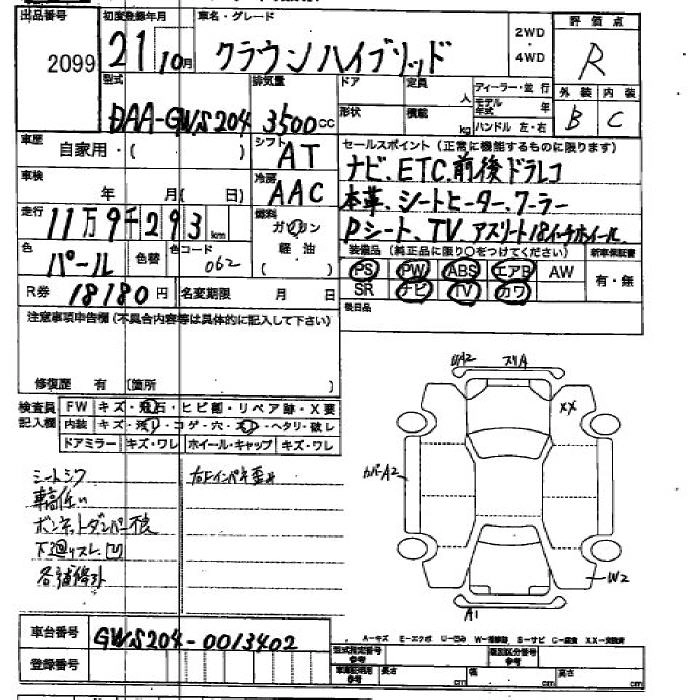 出品番号 2099
初度登録年月 21 10月
車名・グレード クラウンハイブリッド
2WD・4WD
評価点 R
型式 DAA-GWS204
排気量 3500cc
ドア 定員 人
形状 積載 kg
ディーラー・並行
モデル年式 年
ハンドル 左・右
外装 B 内装 C
車歴 自家用・( )
シフト AT
セールスポイント(正常に機能するものに限ります)
ナビ、ETC、前後ドラレコ
車検 年 月( 日)
冷房 AAC
本革、シートヒーター、クーラー
走行 11万9千293km
燃料 ガソリン 軽油 ( )
Pシート、TV アスリート18インチホイール
色 パール 色替 色コード 062
装備品(純正品に限り○をつけてください) 新車保証書
PS PW ABS エアB AW 有・無
SR ナビ TV カワ
R券 18180円 名変期限 月 日
後日品
注意事項申告欄(不具合内容等は具体的に記入して下さい)
修復歴 有 (箇所 )
検査員記入欄
FW キズ・飛石・ヒビ割・リペア跡・X要
内装 キズ・汚レ・コゲ・穴・スレ・ヘタリ・破レ
ドアミラー キズ・ワレ ホイール・キャップ キズ・ワレ
シートシワ
車高低い
ボンネットダンパー不良
下廻りスレ、凹
各補修跡
U2 スリA
XX
カバーA2
W2
A1
車台番号 GWS204-0013402
登録番号
A-キズ E-エクボ U-凹み W-補修跡 S-サビ C-腐食 XX-交換済
型式指定番号 参考
類別区分番号 参考
車庫証明用 参考 長さ cm 幅 cm 高さ cm